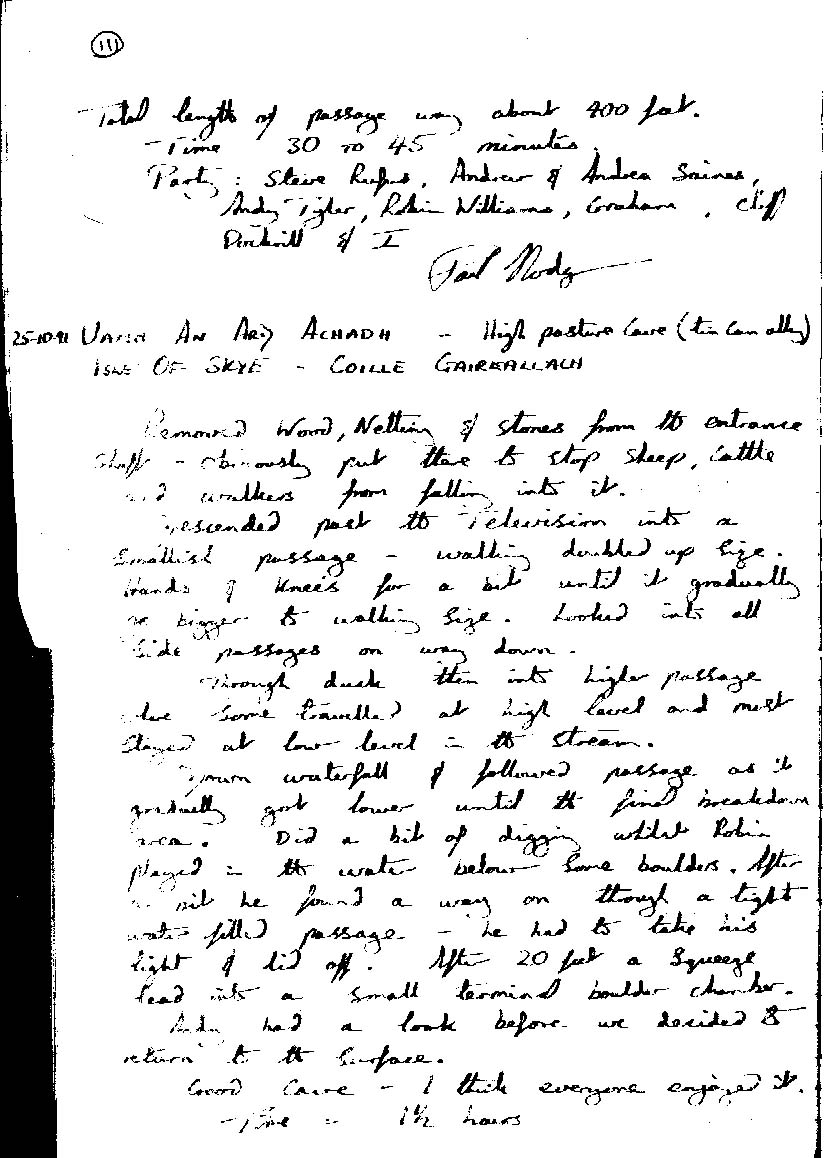 111
Total length of passage way about 400 feet.
Time 30 to 45 minutes.
Party : Steve Rufus, Andrew & Andrea Saines,
Andy Tyler, Robin Williams, Graham , Cliff
& I
25-10-91 UAMH AN ARD ACHADH - High pasture Cave (tin can alley)
ISLE OF SKYE - COILLE
Removed Wood, Netting & stones from the entrance
Shaft - obviously put there to stop sheep, cattle
and walkers from falling into it.
Descended past the Television into a
Smallish passage - walking doubled up size.
Hands & Knees for a bit until it gradually
bigger to walking size. Looked into all
Side passages on way down.
Through duck then into higher passage
some travelled at high level and most
stayed at low level in the stream.
Down waterfall & followed passage as it
gradually got lower until the final breakdown
area. Did a bit of digging whilst Robin
played in the water below some boulders. After
a bit he found a way on though a tight
water filled passage - he had to take his
light & lid off. After 20 feet a Squeeze
lead into a small terminal boulder chamber.
Andy had a look before we decided to
return to the surface.
Good Cave - I think everyone enjoyed it.
Time = 1½ hours